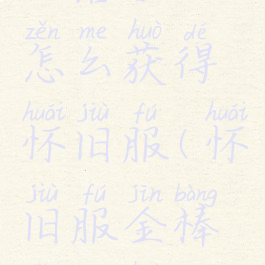 zěn me huò dé
怎么获得
huái jiù fú huái
怀旧服(怀
jiù fú jīn bàng
旧服金棒